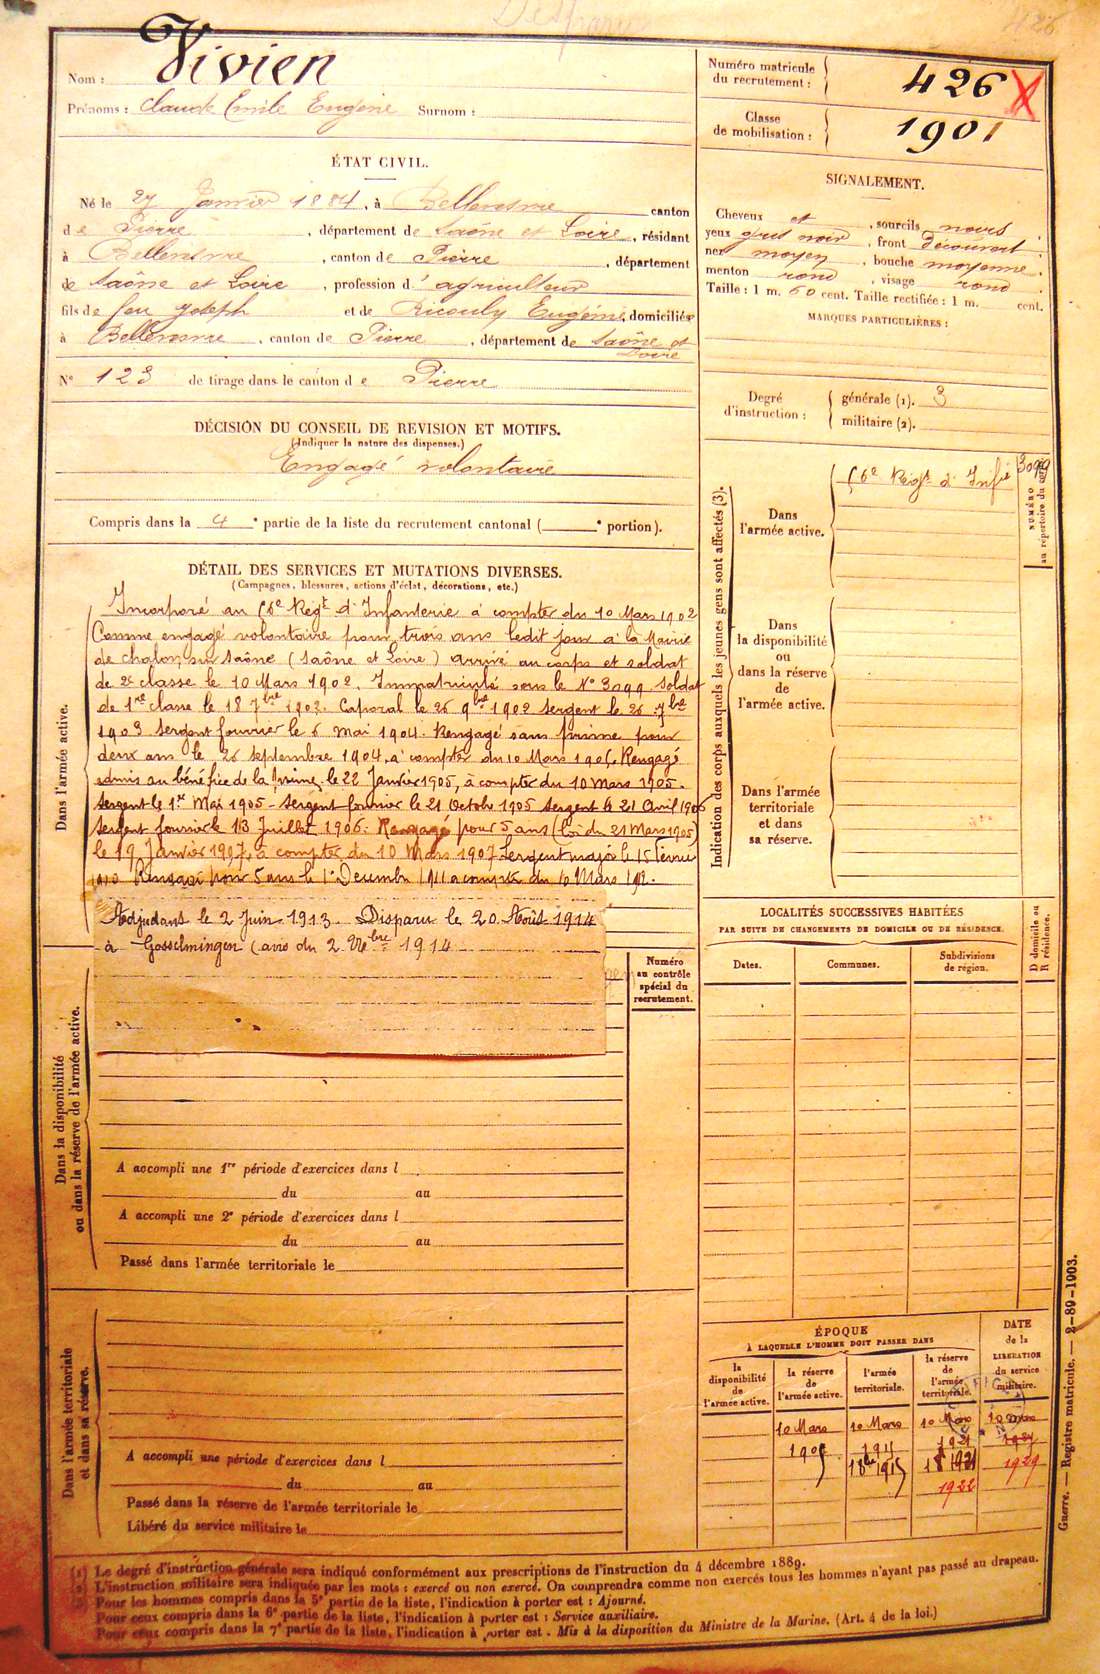 Disparu
426
Nom : Vivien
Prénoms : Claude Emile Eugène Surnom :
ÉTAT CIVIL.
Né le 27 Janvier 1884, à Bellevesvre canton
de Pierre, département de Saône et Loire, résidant
à Bellevesvre, canton de Pierre, département
de Saône et Loire, profession d'agriculteur
fils de feu Joseph et de Ricouly Eugénie, domiciliés
à Bellevesvre, canton de Pierre, département de Saône et
Loire
N° 123 de tirage dans le canton de Pierre
DÉCISION DU CONSEIL DE REVISION ET MOTIFS.
(Indiquer la nature des dispenses.)
Engagé volontaire
Compris dans la 4e partie de la liste du recrutement cantonal ( e portion).
DÉTAIL DES SERVICES ET MUTATIONS DIVERSES.
(Campagnes, blessures, actions d'éclat, décorations, etc.)
Dans l'armée active.
Incorporé au Régt d'Infanterie à compter du 10 Mars 1902
Comme engagé volontaire pour trois ans ledit jour à la Mairie
de chalon sur Saône (Saône et Loire) arrivé au corps et soldat
de 2e classe le 10 Mars 1902. Immatriculé sous le N° 3099 Soldat
de 1re classe le 18 7bre 1902. Caporal le 26 9bre 1902 Sergent le 26 7bre
1903 Sergent fourrier le 6 mai 1904. Rengagé sans prime pour
deux ans le 26 septembre 1904, à compter du 10 Mars 1905. Rengagé
admis au bénéfice de la prime le 22 Janvier 1905, à compter du 10 Mars 1905.
Sergent le 1er Mai 1905 - Sergent fourrier le 21 Octobre 1905 Sergent le 21 Avril 1906
Sergent fourrier le 13 Juillet 1906. Rengagé pour 5 ans (Loi du 21 Mars 1905)
le 19 Janvier 1907, à compter du 10 Mars 1907 Sergent major le 15 Février
1910 Rengagé pour 5 ans le 1er Décembre 1911 à compter du 10 Mars 1912.
Adjudant le 2 Juin 1913. Disparu le 20 Août 1914
à Gosselmingen (avis du 2 1914
Numéro
au contrôle
spécial du
recrutement.
Dans la disponibilité
ou dans la réserve de l'armée active.
A accompli une 1re période d'exercices dans l
du au
A accompli une 2e période d'exercices dans l
du au
Passé dans l'armée territoriale le
Dans l'armée territoriale
et dans sa réserve.
A accompli une période d'exercices dans l
du au
Passé dans la réserve de l'armée territoriale le
Libéré du service militaire le
Numéro matricule
du recrutement : 426 X
Classe
de mobilisation : 1901
SIGNALEMENT.
Cheveux et , sourcils noirs
yeux gris noir, front découvert
nez moyen, bouche moyenne
menton rond, visage rond
Taille : 1 m. 60 cent. Taille rectifiée : 1 m. cent.
MARQUES PARTICULIÈRES :
Degré
d'instruction :
générale (1). 3
militaire (2).
Indication des corps auxquels les jeunes gens sont affectés (3).
Dans
l'armée active.
Régt d'Infie
3099
NUMÉRO
au répertoire du corps
Dans
la disponibilité
ou
dans la réserve
de
l'armée active.
Dans l'armée
territoriale
et dans
sa réserve.
LOCALITÉS SUCCESSIVES HABITÉES
PAR SUITE DE CHANGEMENTS DE DOMICILE OU DE RÉSIDENCE.
Dates. Communes. Subdivisions
de région.
D domicile ou
R résidence.
ÉPOQUE
À LAQUELLE L'HOMME DOIT PASSER DANS
DATE
de la
LIBÉRATION
du service
militaire.
la
disponibilité
de
l'armée active.
la réserve
de
l'armée active.
l'armée
territoriale.
la réserve
de
l'armée
territoriale.
10 Mars 10 Mars 10 Mars 10 Mars
1905 1915 1921 1927
1er 8bre 1915 1er 8bre 1921 1929
1922
Guerre. — Registre matricule. — 2-89-1903.
(1) Le degré d'instruction générale sera indiqué conformément aux prescriptions de l'instruction du 4 décembre 1889.
(2) L'instruction militaire sera indiquée par les mots : exercé ou non exercé. On comprendra comme non exercés tous les hommes n'ayant pas passé au drapeau.
Pour les hommes compris dans la 5e partie de la liste, l'indication à porter est : Ajourné.
Pour ceux compris dans la 6e partie de la liste, l'indication à porter est : Service auxiliaire.
Pour ceux compris dans la 7e partie de la liste, l'indication à porter est : Mis à la disposition du Ministre de la Marine. (Art. 4 de la loi.)